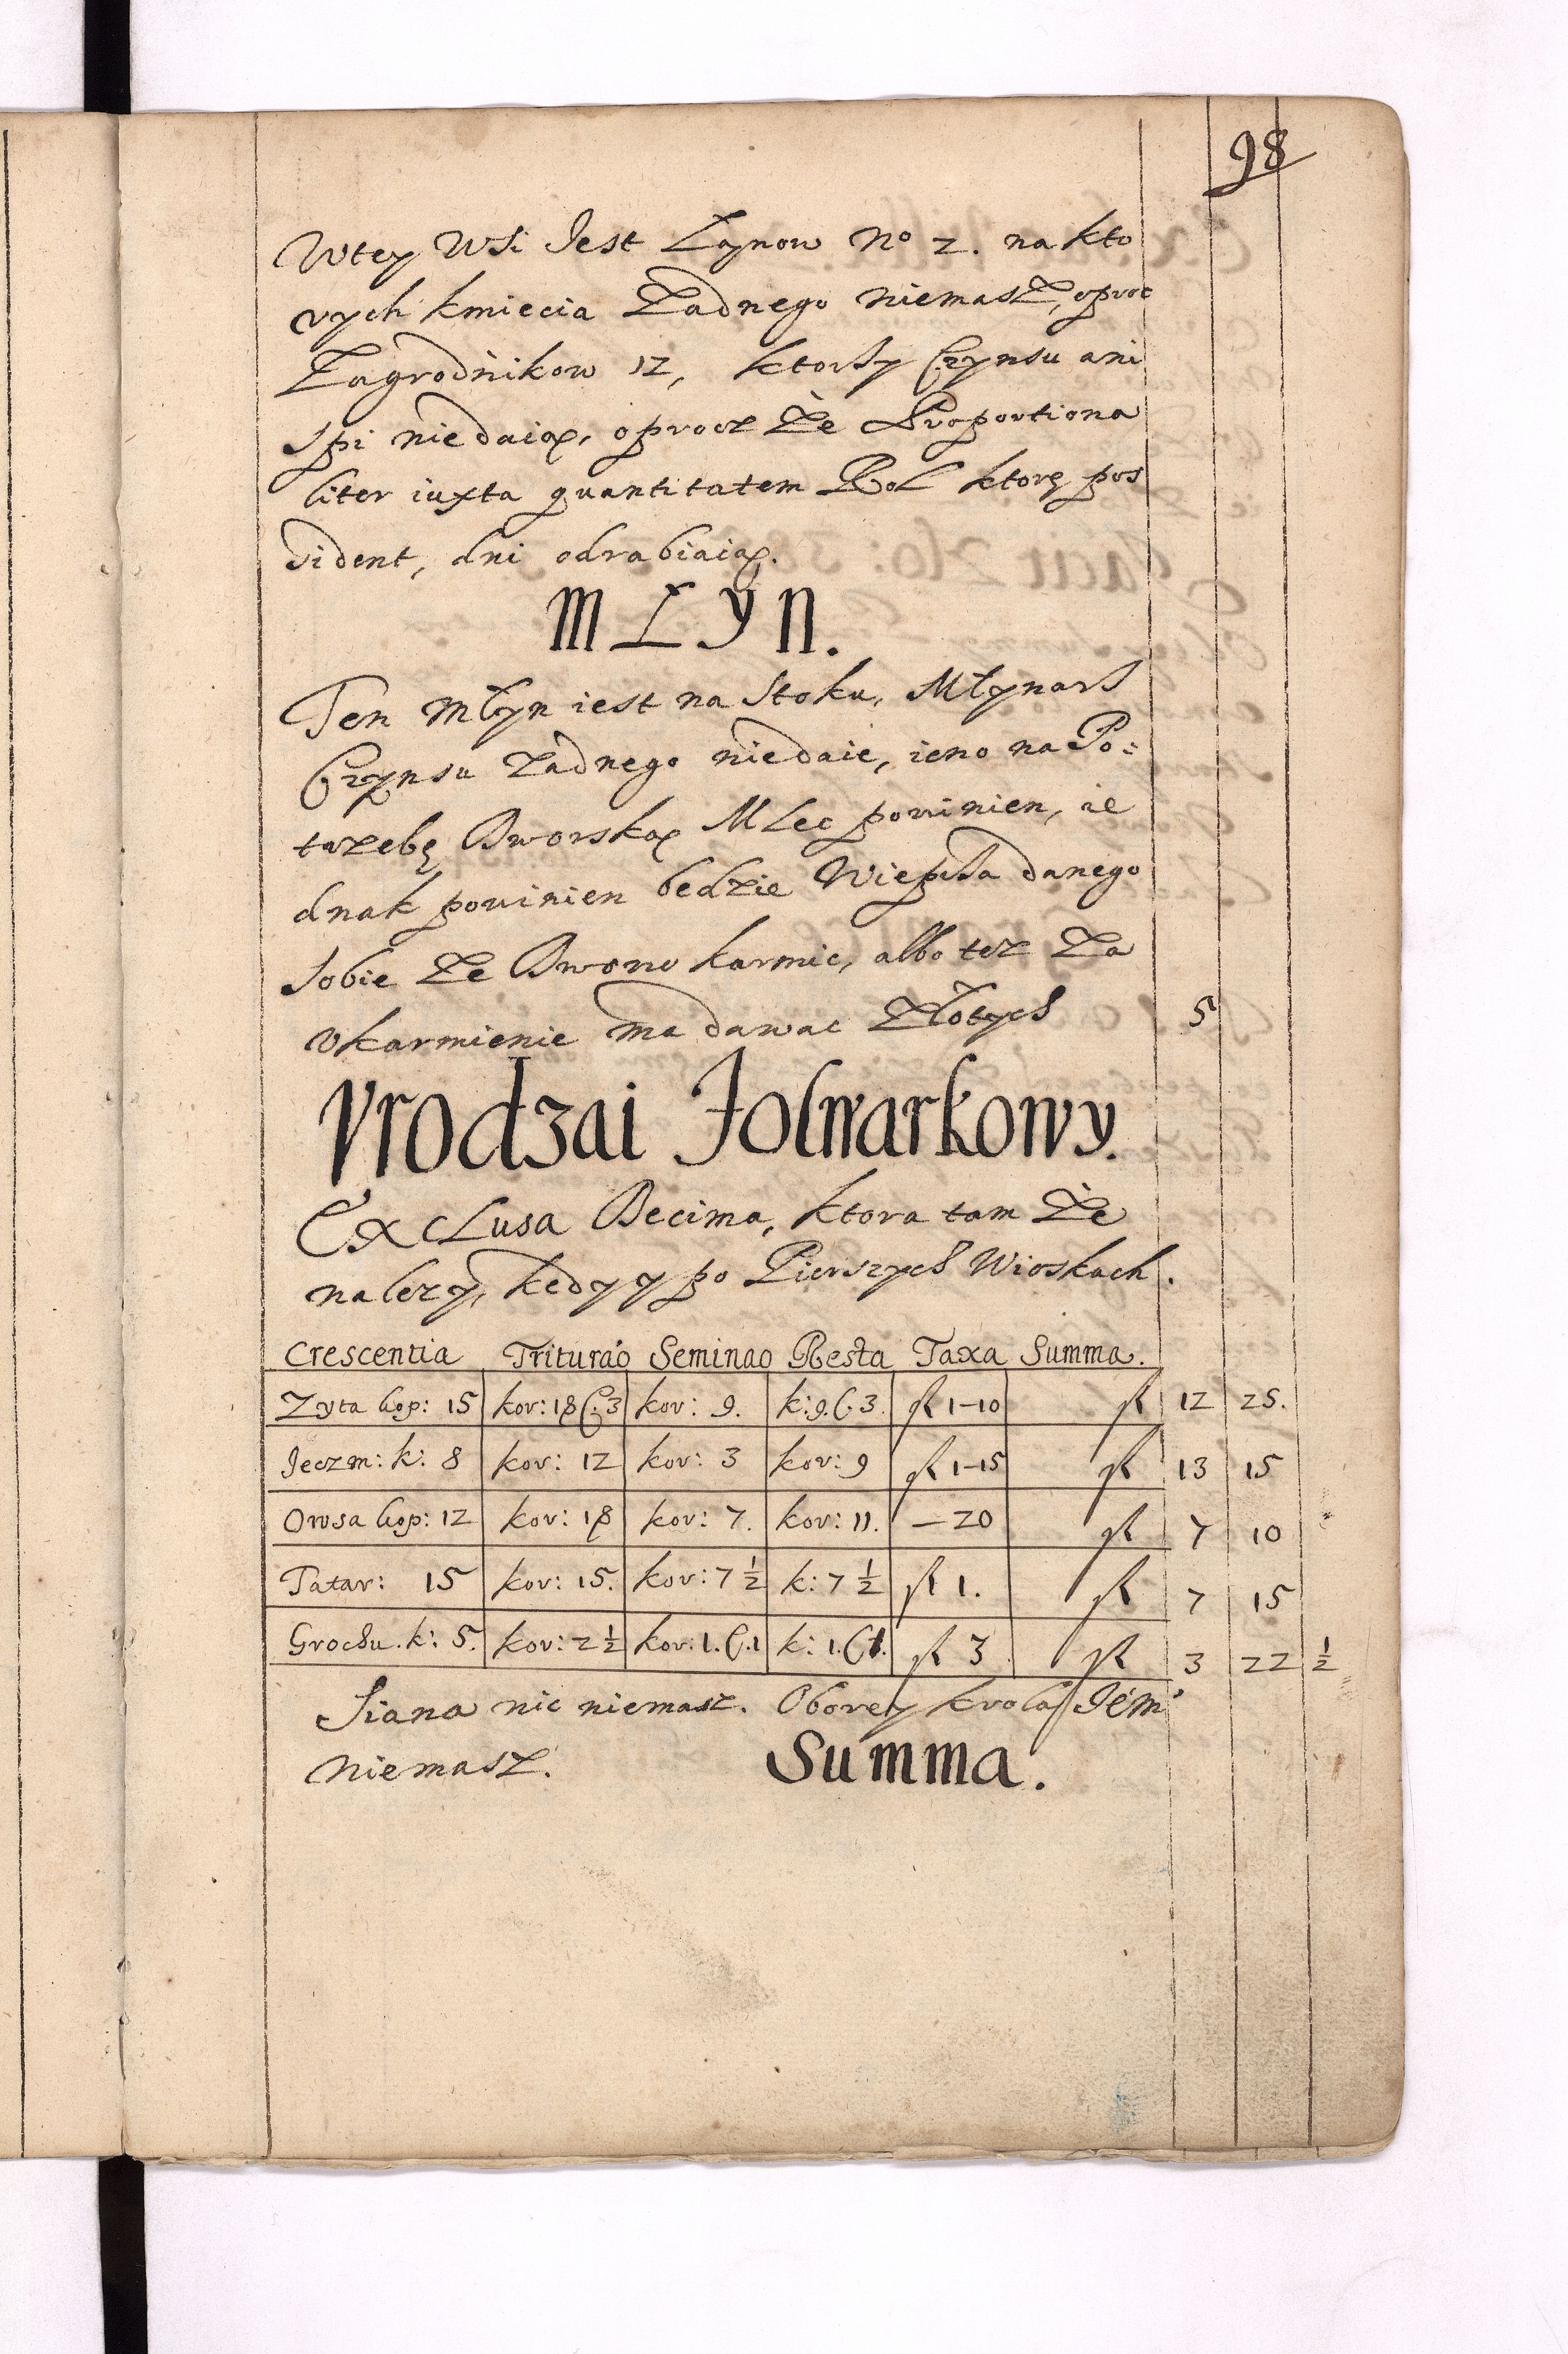 98
Wtey Wsi Jest Łanow No 2. na kto
rych kmiecia Żadnego niemasz, oproc
Zagrodnikow 12, ktorzy Czynsu ani
Spi niedaią, oprocz Że Proportiona
liter iuxta quantitatem Rol ktorę pos
sident, dni odrabiaią.
MŁYN.
Ten Młyn iest na Stoku, Młynarz
Czynsu Żadnego niedaie, ieno na Po:
trzebę Dworską Mlec powinien, ie
dnak powinien bedzie Wieprza danego
Sobie Ze Dworu karmic, albo tez Za
vkarmienie ma dawac Złotych 5
Vrodzai Folwarkowy.
Exclusa Decima, ktora tam Że
nalezy, kedy y po Pierszych Wioskach.
Crescentia Triturao Seminao Resta Taxa Summa.
Zyta kop: 15 kor: 18 C. 3 kor: 9. k: 9. C. 3. fl 1-10 fl 12 25.
Jeczm: k: 8 kor: 12 kor: 3 kor: 9 fl 1-15 fl 13 15
Owsa kop: 12 kor: 18 kor: 7. kor: 11. — 20 fl 7 10
Tatar: 15 kor: 15. kor: 7 ½ k: 7 ½ fl 1. fl 7 15
Grochu. k: 5. kor: 2 ½ kor: 1. C. 1 k: 1. C 1. fl 3 fl 3 22 ½
Siana nic niemasz. Oborey krola Jem
niemasz. Summa.